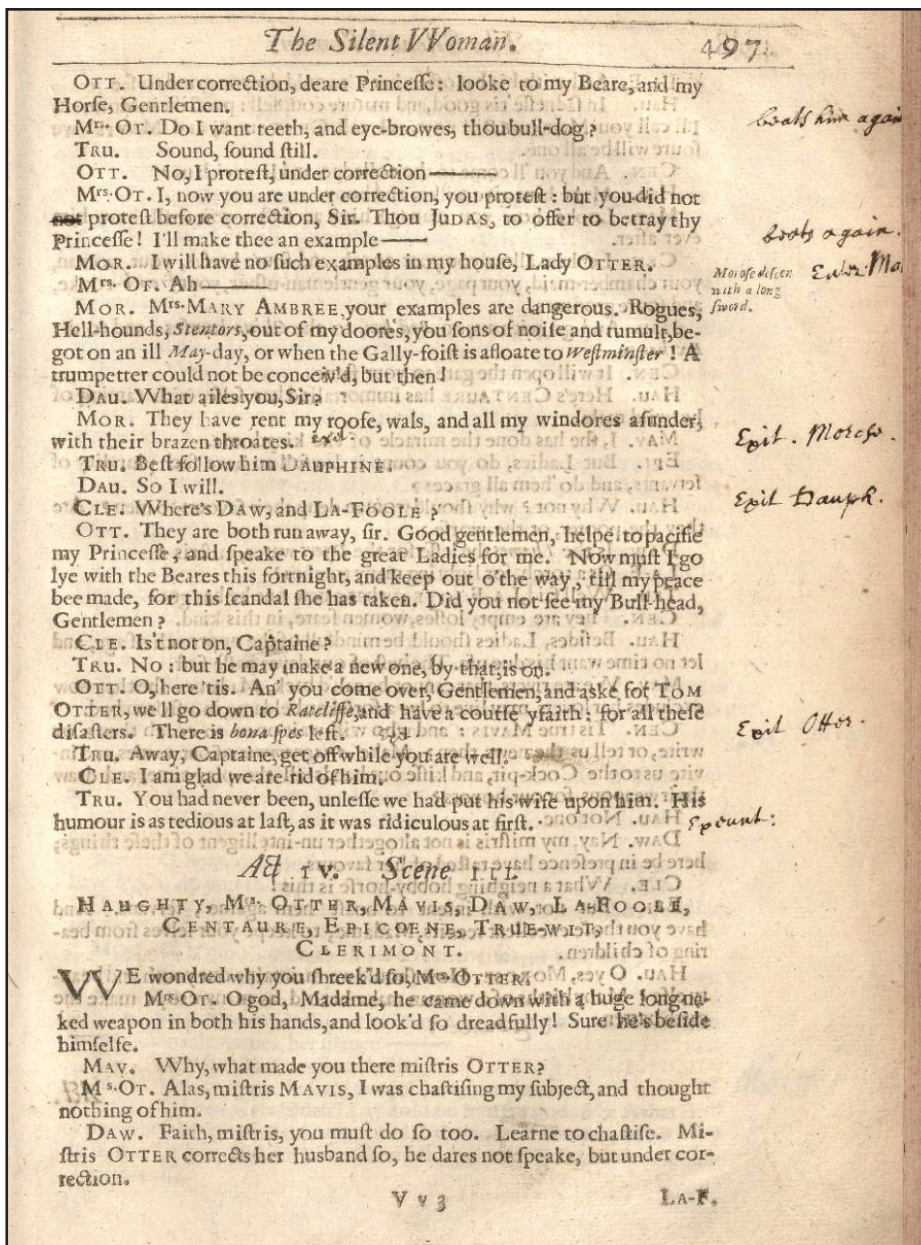 The Silent VVoman. 497
OTT. Under correction, deare Princesse: looke to my Beare, and my
Horse, Gentlemen.
Mrs. OT. Do I want teeth, and eye-browes, thou bull-dog?
beats him again
TRU. Sound, sound still.
OTT. No, I protest, under correction——
Mrs. OT. I, now you are under correction, you protest: but you did not
not protest before correction, Sir. Thou JUDAS, to offer to betray thy
beats again.
Princesse! I'll make thee an example——
MOR. I will have no such examples in my house, Lady OTTER.
Morose descen
with a long
sword.
Enter Mo
Mrs. OT. Ah——
MOR. Mrs. MARY AMBREE, your examples are dangerous. Rogues,
Hell-hounds, Stentors, out of my doores, you sons of noise and tumult, be-
got on an ill May-day, or when the Gally-foist is afloate to Westminster! A
trumpetter could not be conceiv'd, but then!
DAU. What ailes you, Sir?
MOR. They have rent my roofe, wals, and all my windores asunder,
with their brazen throates. exit.
Exit. Morose.
TRU. Best follow him DAUPHINE.
DAU. So I will.
Exit Dauph.
CLE. Where's DAW, and LA-FOOLE?
OTT. They are both run away, sir. Good gentlemen, helpe to pacifie
my Princesse, and speake to the great Ladies for me. Now must I go
lye with the Beares this fortnight, and keep out o'the way, till my peace
bee made, for this scandal she has taken. Did you not see my Bull-head,
Gentlemen?
CLE. Is't not on, Captaine?
TRU. No: but he may make a new one, by that, is on.
OTT. O, here 'tis. An' you come over, Gentlemen, and aske for TOM
OTTER, we'll go down to Ratcliffe, and have a course yfaith: for all these
disasters. There is bona spes left.
Exit Otter.
TRU. Away, Captaine, get off while you are well.
CLE. I am glad we are rid of him.
TRU. You had never been, unlesse we had put his wife upon him. His
humour is as tedious at last, as it was ridiculous at first.
Exeunt:
Act IV. Scene III.
HAUGHTY, Ms. OTTER, MAVIS, DAW, LA-FOOLE,
CENTAURE, EPICOENE, TRUE-WIT,
CLERIMONT.
VVE wondred why you shreek'd so, Mrs. OTTER.
Ms. OT. O god, Madame, he came down with a huge long na-
ked weapon in both his hands, and look'd so dreadfully! Sure he's beside
himselfe.
MAV. Why, what made you there mistris OTTER?
Ms. OT. Alas, mistris MAVIS, I was chastising my subject, and thought
nothing of him.
DAW. Faith, mistris, you must do so too. Learne to chastise. Mi-
stris OTTER corrects her husband so, he dares not speake, but under cor-
rection.
V v 3 LA-F.